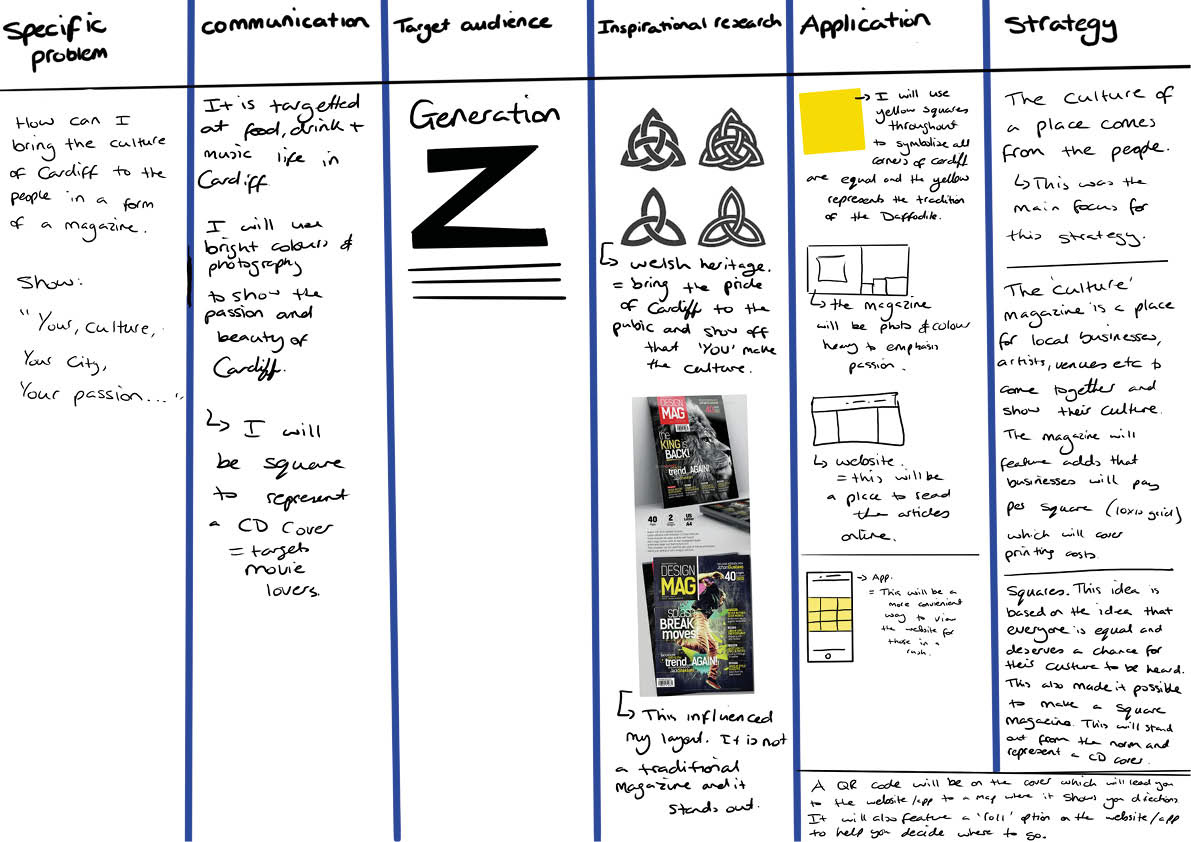 Specific
problem
How can I
bring the culture
of Cardiff to the
people in a form
of a magazine.
Show:
"Your, culture,
Your City,
Your passion..."
communication
It is targetted
at food, drink +
music life in
Cardiff
I will use
bright colours &
photography
to show the
passion and
beauty of
Cardiff.
I will
be square
to represent
a CD Cover
= targets
movie
lovers.
Target audience
Generation
Z
Inspirational research
welsh heritage.
= bring the pride
of Cardiff to the
pubic and show off
that 'YOU' make
the culture.
DESIGN
MAG
the
KING is
BACK!
trend..AGAIN!
40
2
US
A4
DESIGN
MAG
40
splash
BREAK
moves!
trend..AGAIN!
This influenced
my layout. It is not
a traditional
magazine and it
stands out.
Application
I will use
yellow squares
throughout
to symbolise all
corners of cardiff
are equal and the yellow
represents the tradition
of the Daffodile.
the magazine
will be photo & colour
heavy to emphasis
passion.
website.
= this will be
a place to read
the articles
online.
App.
= This will be a
more convenient
way to view
the website for
those in a
rush.
Strategy
The culture of
a place comes
from the people.
This was the
main focus for
this strategy.
The 'culture'
magazine is a place
for local businesses,
artists, venues etc to
come together and
show their culture.
The magazine will
feature adds that
businesses will pay
per square (10x10 grid)
which will cover
printing costs.
Squares. This idea is
based on the idea that
everyone is equal and
deserves a chance for
their culture to be heard.
This also made it possible
to make a square
magazine. This will stand
out from the norm and
represent a CD cover.
A QR code will be on the cover which will lead you
to the website/app to a map where it shows you directions
It will also feature a 'roll' option on the website/app
to help you decide where to go.